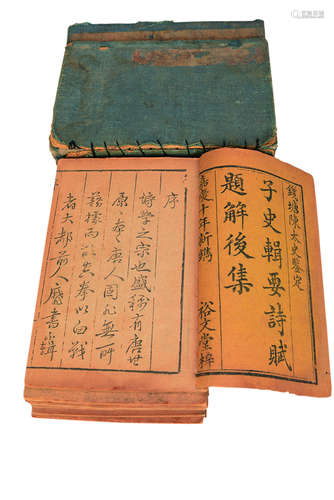 錢塘陳太史鑒定
子史輯要詩賦
題解後集
嘉慶十年新鐫
裕文堂梓
序
詩學之宗也盛稱有唐
唐人固無所
藉據而以空拳以白戰
者大都前人書輯